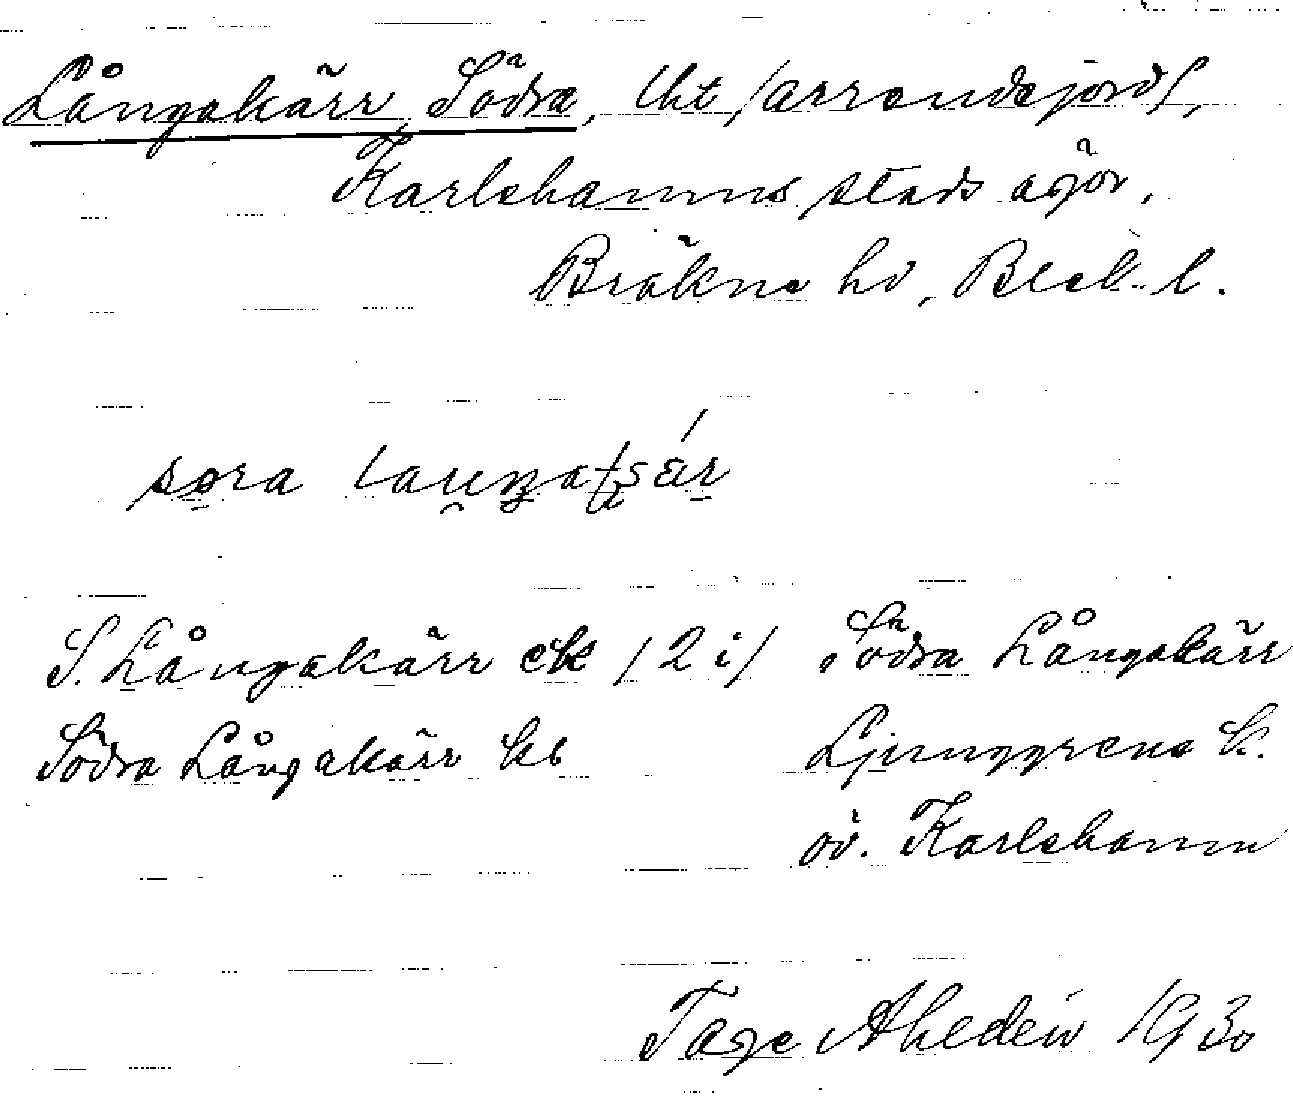 Långakärr, Södra, lht /arrendejord/,
Karlshamns stads ägor,
Bräkne hd, Blek. l.
S. Långakärr ek /2 i/ Södra Långakärr
Södra Långakärr kb Ljunggrens k.
öv. Karlshamn
Tage Ahldén 1930